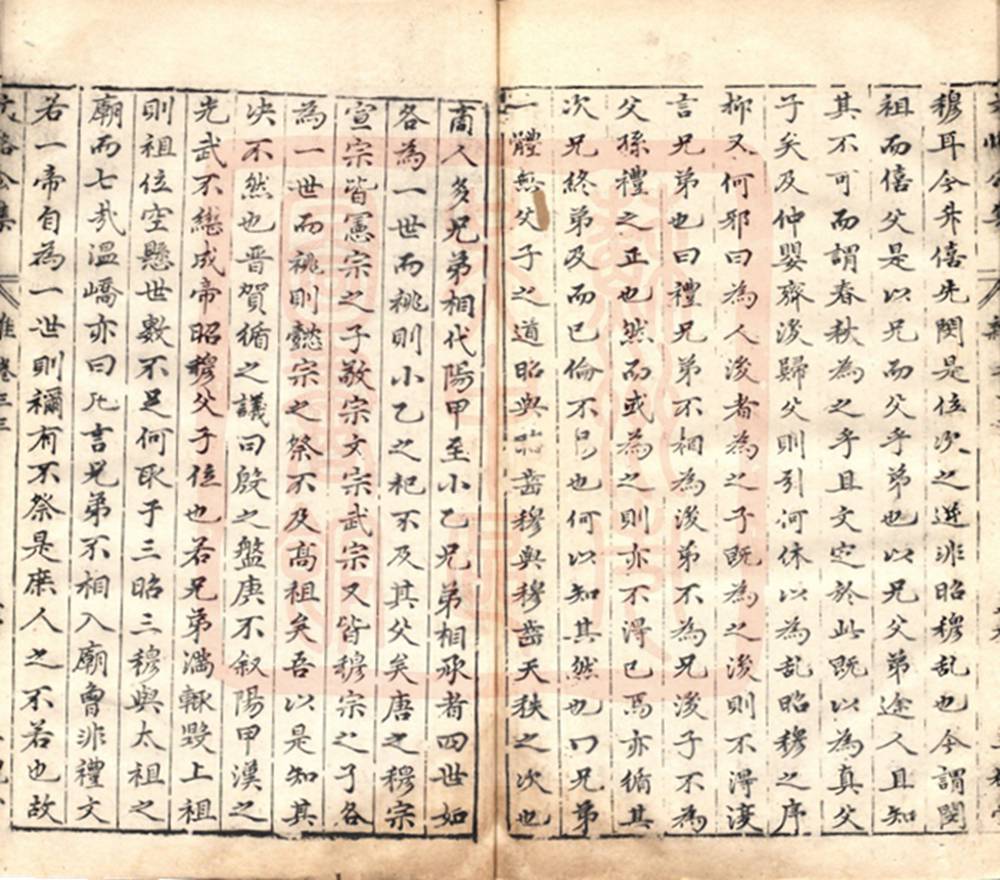 穆耳今升僖先閔是位次之逆非昭穆乱也今謂閔
祖而僖父是以兄而父乎弟也以兄父弟途人且知
其不可而謂春秋為之乎且文定於此既以為真父
子矣及仲嬰齊後歸父則引河休以為乱昭穆之序
抑又何邪曰為人後者為之子既為之後則不得後
言兄弟也曰禮兄弟不相為後弟不為兄後子不為
父孫禮之正也然而或為之則亦不得已焉亦循其
次兄終弟及而已倫不易也何以知其然也曰兄弟
一體無父子之道昭與昭齒穆與穆齒天秩之次也
商人多兄弟相代陽甲至小乙兄弟相承者四世如
各為一世而祧則小乙之祀不及其父矣唐之穆宗
宣宗皆憲宗之子敬宗文宗武宗又皆穆宗之子各
為一世而祧則懿宗之祭不及高祖矣吾以是知其
决不然也晋賀循之議曰殷之盤庚不叙陽甲漢之
光武不繼成帝昭穆父子位也若兄弟滿輒毀上祖
則祖位空懸世數不足何取于三昭三穆與太祖之
廟而七哉溫嶠亦曰凡言兄弟不相入廟曾非禮文
若一帝自為一世則禰有不祭是庶人之不若也故